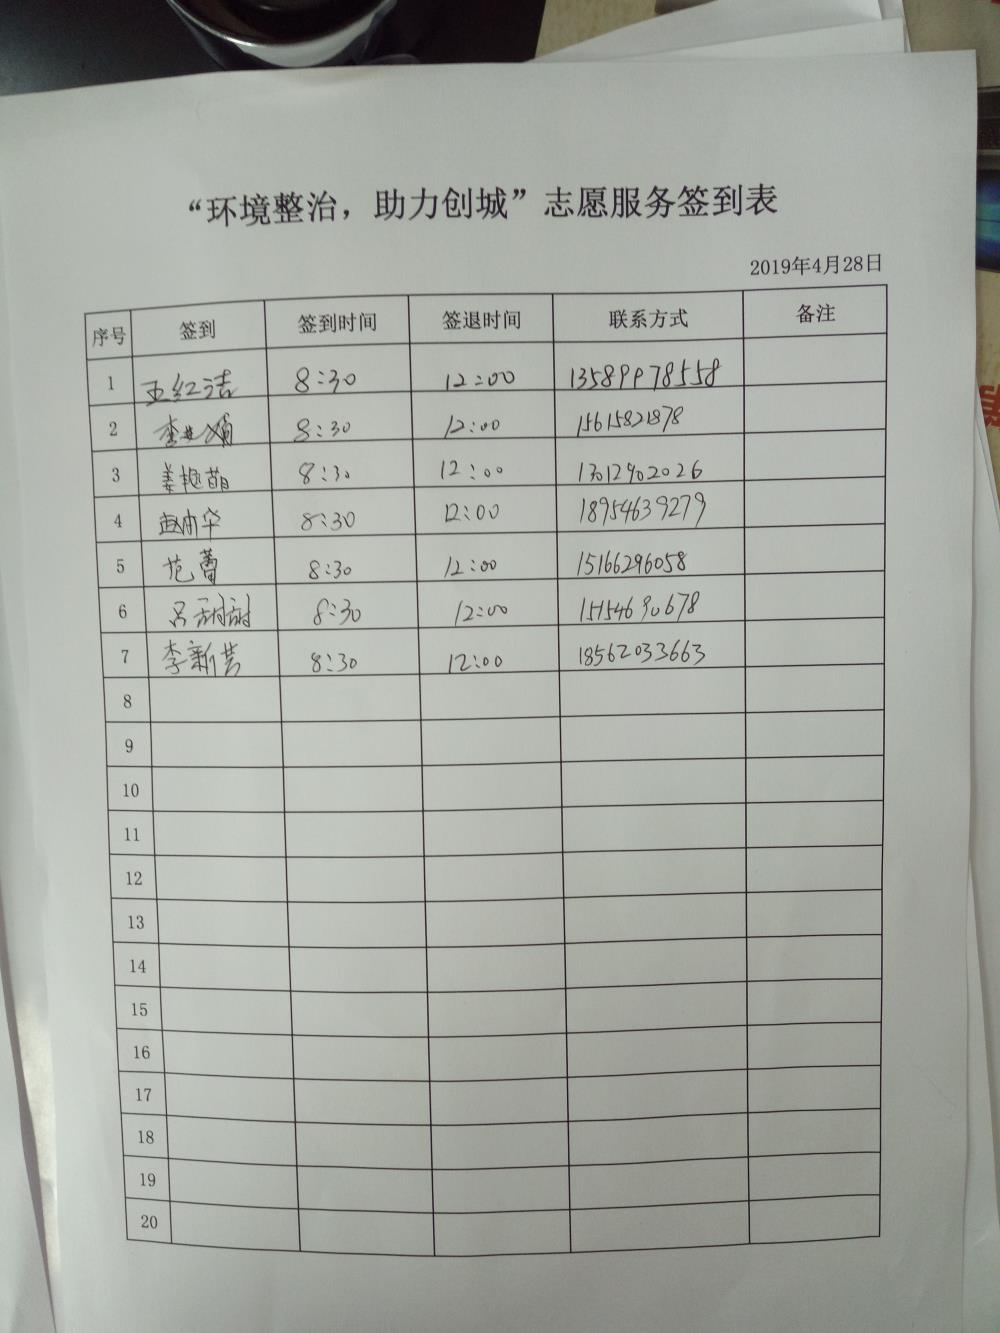 “环境整治，助力创城”志愿服务签到表
2019年4月28日
序号 签到 签到时间 签退时间 联系方式 备注
1 王红洁 8:30 12:00 13589978558
2 8:30 12:00 15615821878
3 姜艳苗 8:30 12:00 13012902026
4 8:30 12:00 18954639279
5 范蕾 8:30 12:00 15166296058
6 吕甜甜 8:30 12:00 15154690678
7 李新芸 8:30 12:00 18562033663
8
9
10
11
12
13
14
15
16
17
18
19
20